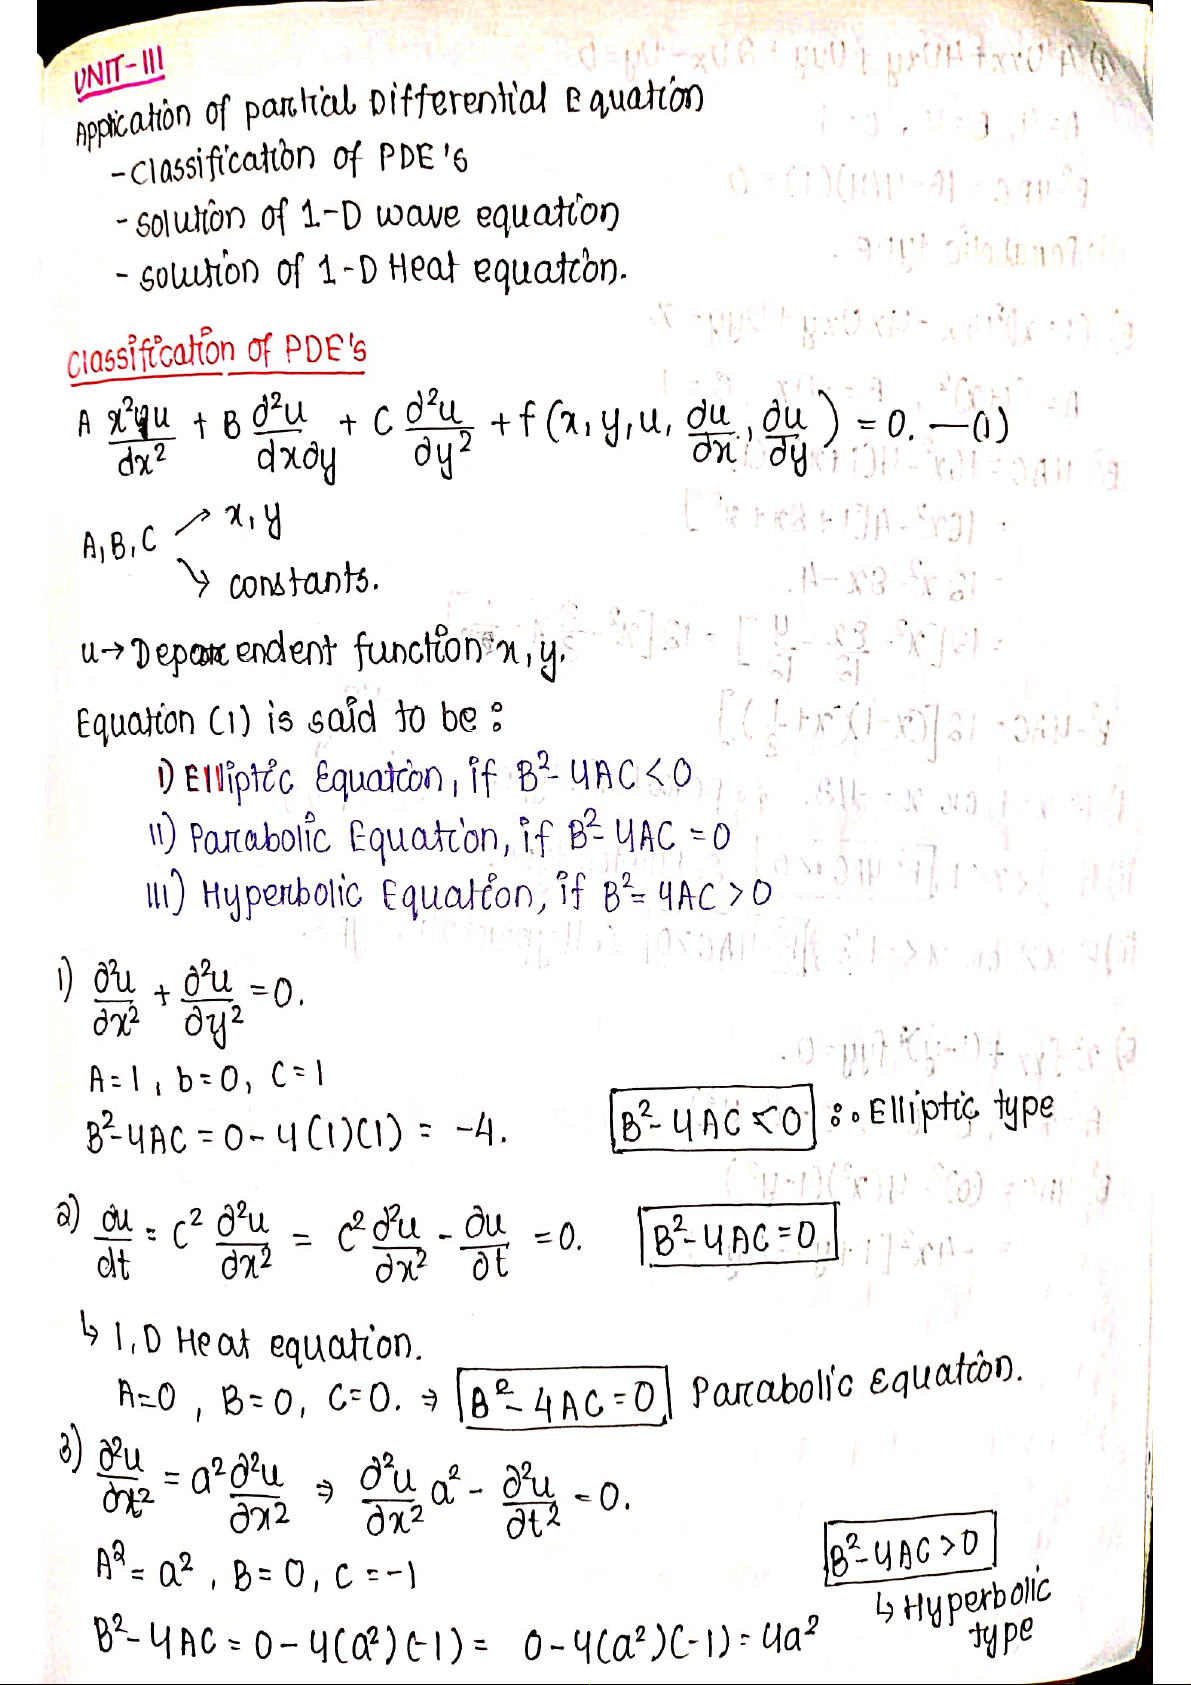 UNIT-III
Application of partial Differential Equation
- Classification of PDE's
- solution of 1-D wave equation
- solution of 1-D Heat equation.
Classification of PDE's
A ∂²u/dx² + B d²u/dx∂y + C ∂²u/∂y² + f(x, y, u, ∂u/∂x, ∂u/∂y) = 0. —(1)
A, B, C ↗ x, y
↘ constants.
u → Dependent function x, y.
Equation (1) is said to be :
i) Elliptic Equation, if B²-4AC<0
ii) Parabolic Equation, if B²-4AC=0
iii) Hyperbolic Equation, if B²-4AC>0
1) ∂²u/∂x² + ∂²u/∂y² = 0.
A=1, b=0, C=1
B²-4AC = 0-4(1)(1) = -4. B²-4AC<0 ∴ Elliptic type
2) ∂u/dt = C² ∂²u/∂x² = C² ∂²u/∂x² - ∂u/∂t = 0. B²-4AC=0
↳ 1,D Heat equation.
A=0, B=0, C=0. ⇒ B²-4AC=0 Parabolic Equation.
3) ∂²u/∂t² = a² ∂²u/∂x² ⇒ ∂²u/∂x² a² - ∂²u/∂t² = 0.
A² = a², B=0, C=-1 B²-4AC>0
↳ Hyperbolic type
B²-4AC = 0-4(a²)(-1) = 0-4(a²)(-1) = 4a²